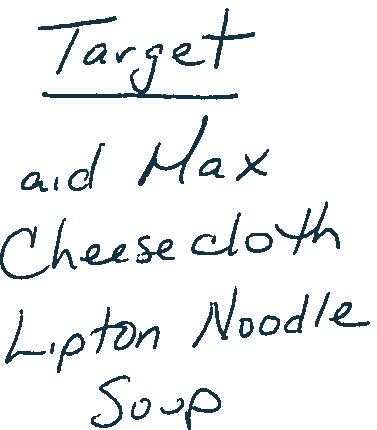 Target
aid Max
Cheesecloth
Lipton Noodle
Soup